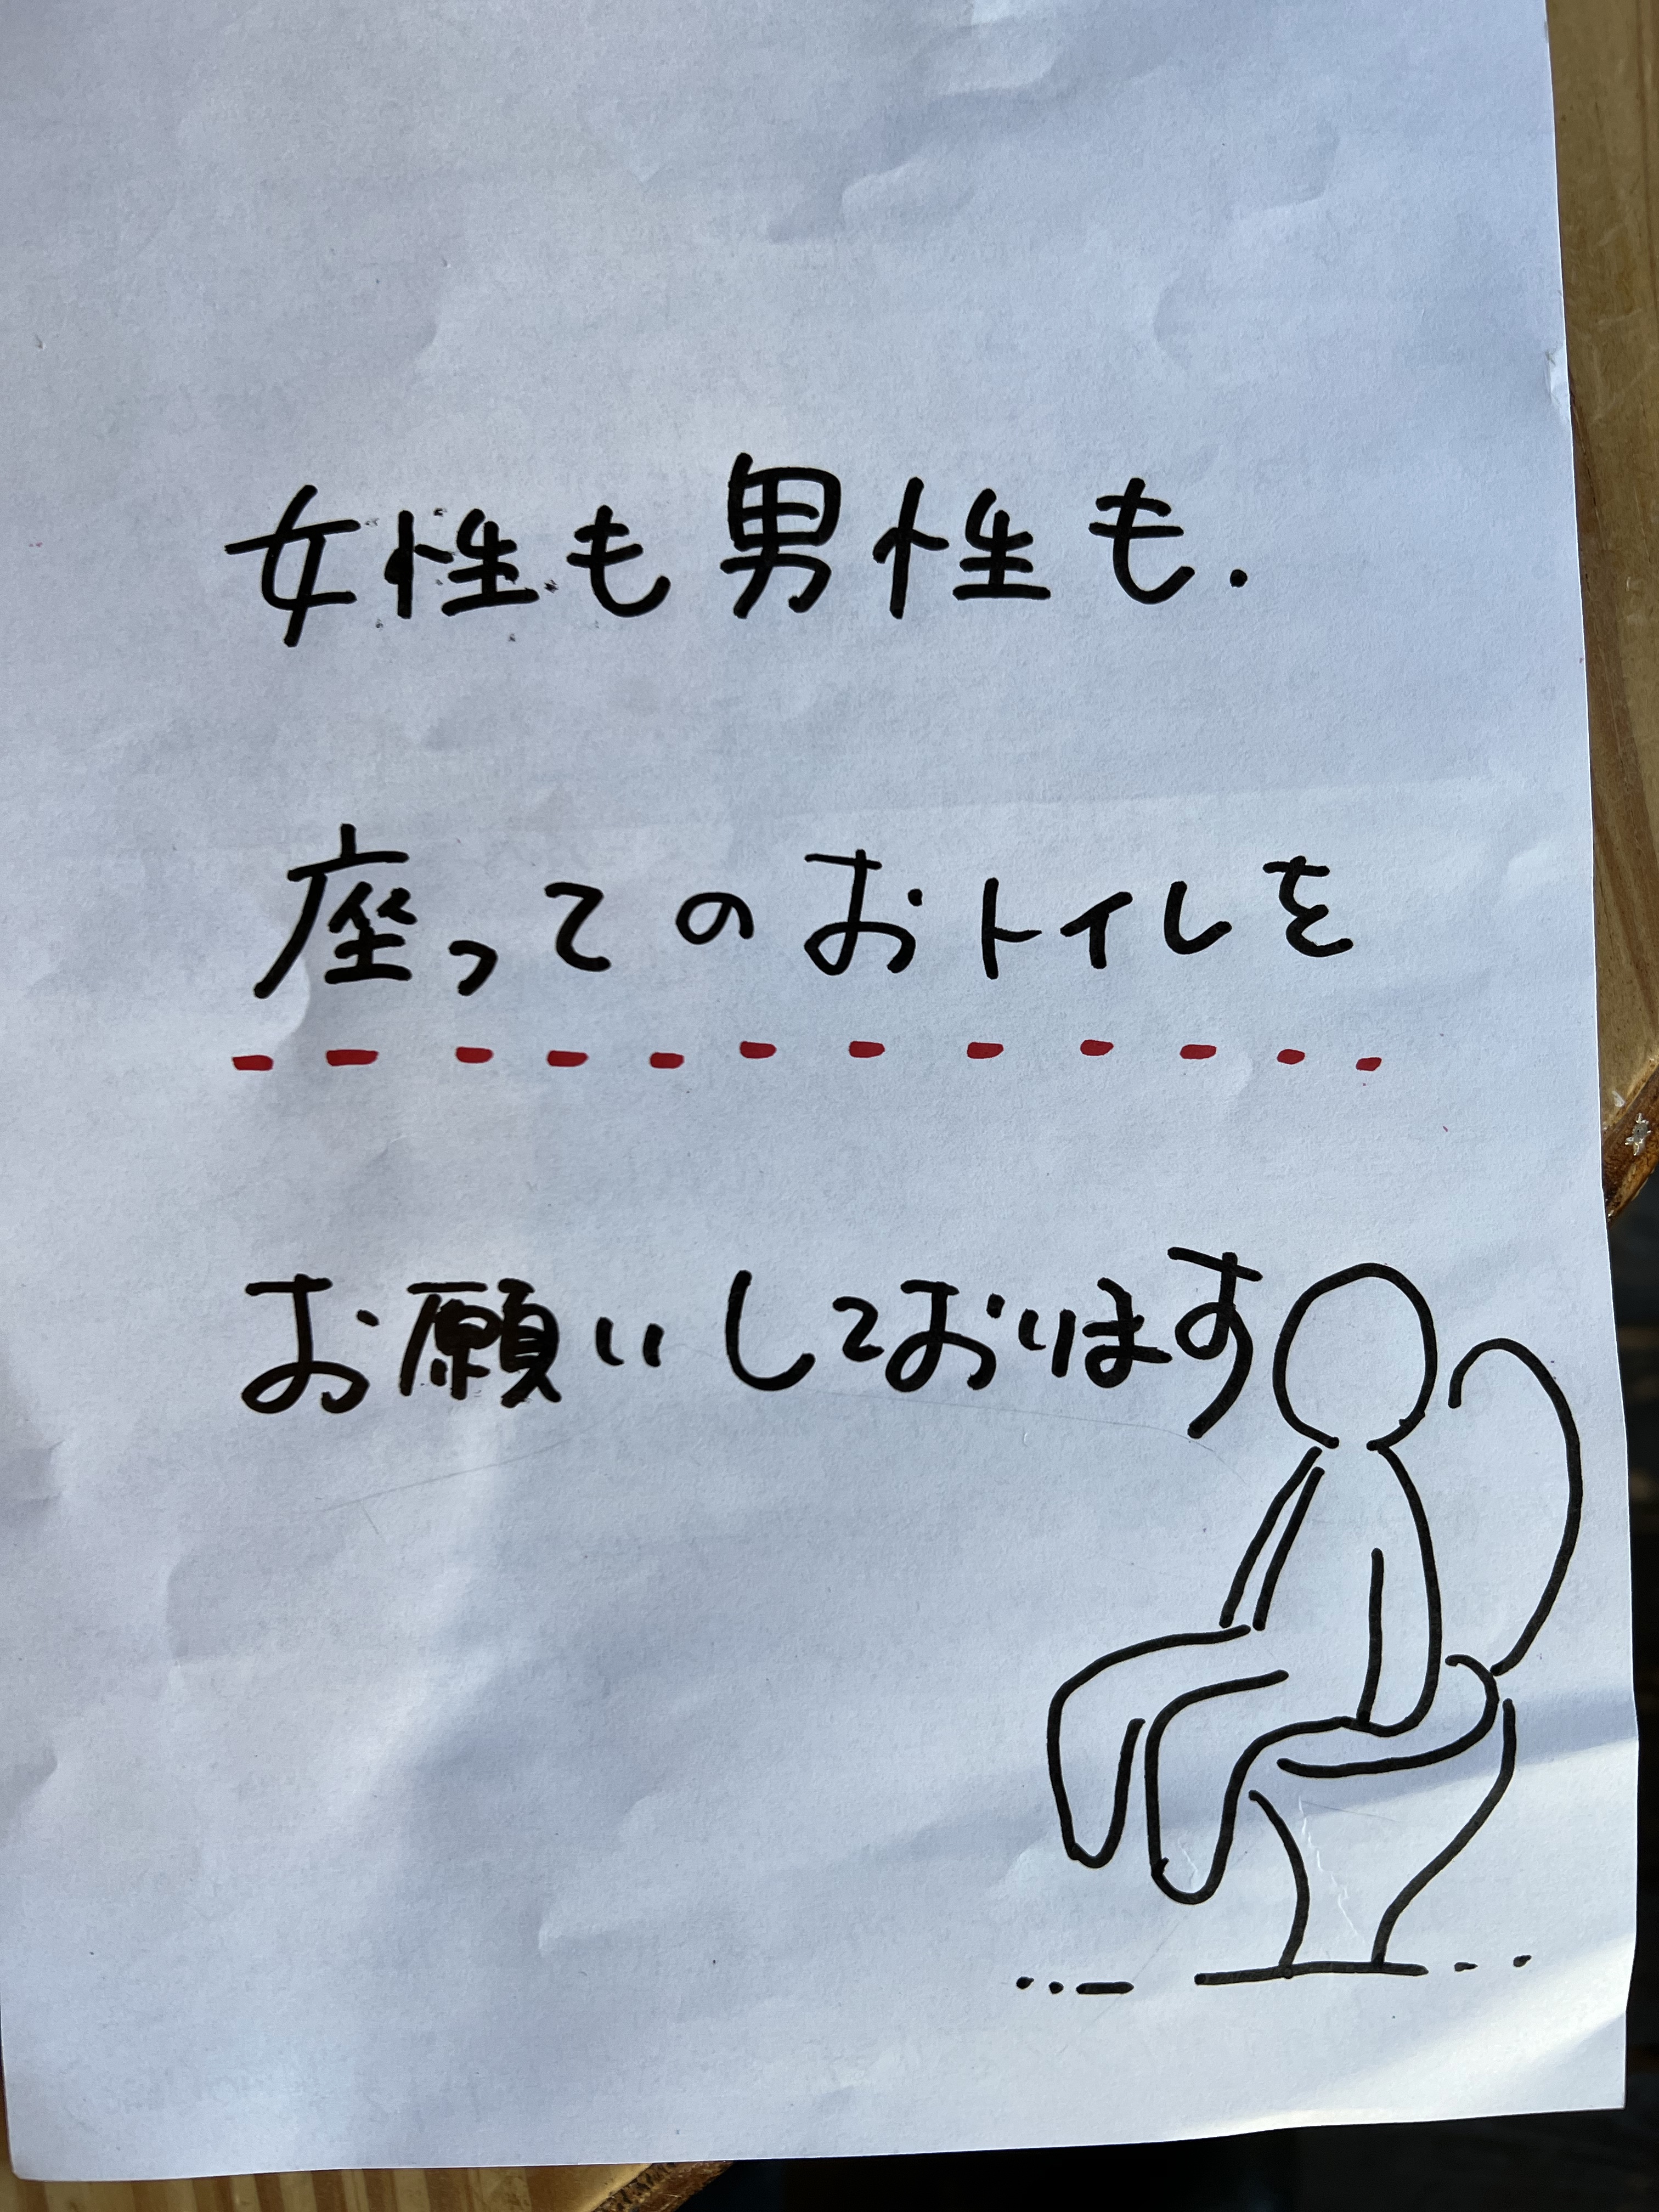 女性も男性も.
座ってのおトイレを
お願いしております